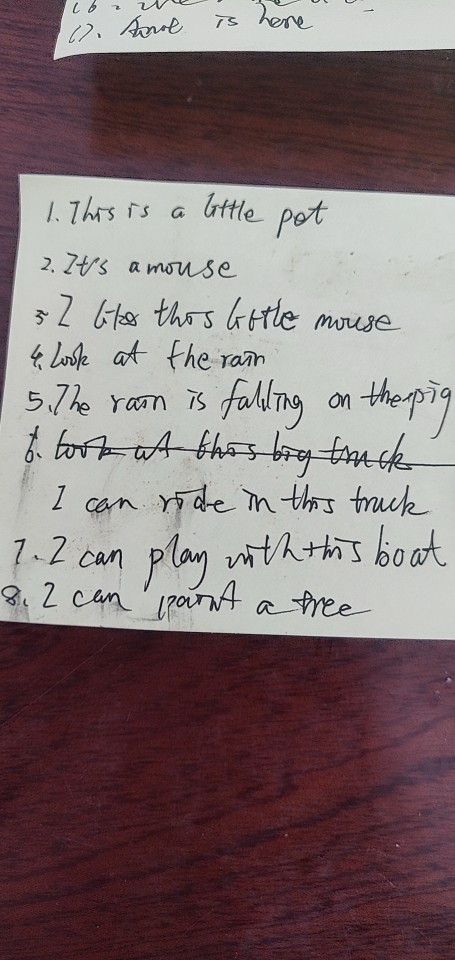 17. is here
1. This is a little pot
2. It's a mouse
3 I like this little mouse
4. Look at the rain
5. The rain is falling on the pig
6. Look at this big truck
I can ride in this truck
7. I can play with this boat
8. I can paint a tree